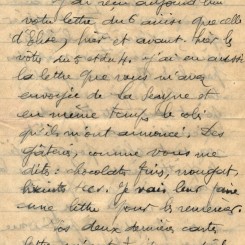 J'ai reçu aujourd'hui
votre lettre du 6 ainsi que celle
d'Elise, hier et avant hier les
votes du 5 et du 4. J'ai eu aussi
la lettre que vous m'avez
envoyée de la Seyne et
en même temps le colis
qu'ils m'ont annoncé. Des
gâteaux, comme vous me
dites: chocolats fins, nougat,
etc. Je vais leur faire
une lettre pour les remercier.
vos deux dernières cartes